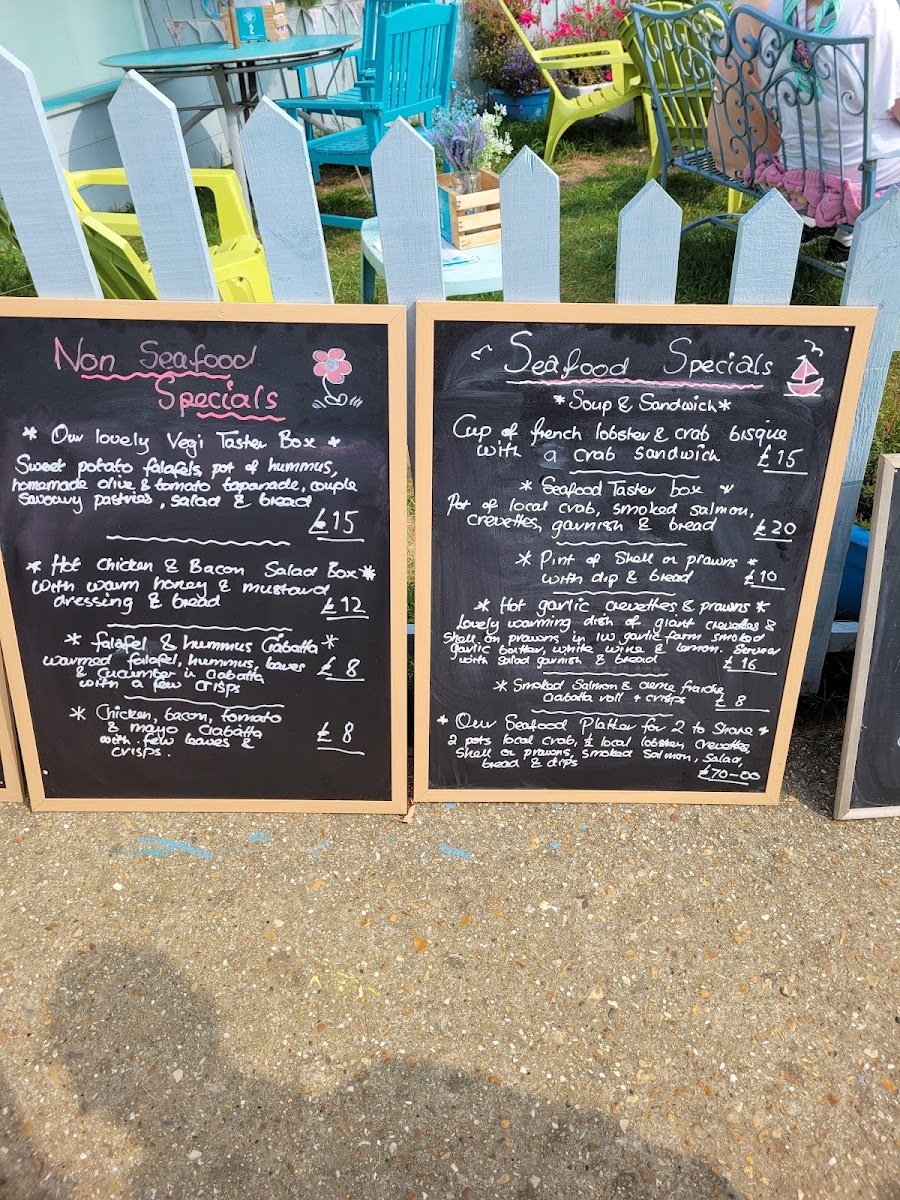 2
Non Seafood
Specials
* Our lovely Vegi Taster Box *
Sweet potato falafels, pot of hummus,
homemade olive & tomato tapanade, couple
savoury pastries, salad & bread
£15
* Hot Chicken & Bacon Salad Box *
with warm honey & mustard
dressing & bread
£12
* falafel & hummus Ciabatta *
warmed falafel, hummus, leaves
& Cucumber in Ciabatta
with a few crisps
£8
* Chicken, bacon, tomato
& mayo Ciabatta
with few leaves &
crisps.
£8
Seafood Specials
* Soup & Sandwich *
Cup of french lobster & crab bisque
with a crab sandwich
£15
* Seafood Taster box *
Pot of local crab, smoked salmon,
crevettes, garnish & bread
£20
* Pint of Shell on prawns *
with dip & bread
£10
* Hot garlic crevettes & prawns *
Lovely warming dish of giant crevettes &
Shell on prawns in IW garlic farm smoked
garlic butter, white wine & lemon. Served
with salad garnish & bread
£16
* Smoked Salmon & creme fraiche
Ciabatta roll + crisps
£8
* Our Seafood Platter for 2 to Share *
2 pots local crab, ½ local lobster, crevettes,
Shell on prawns, smoked salmon, salad,
bread & dips
£70-00